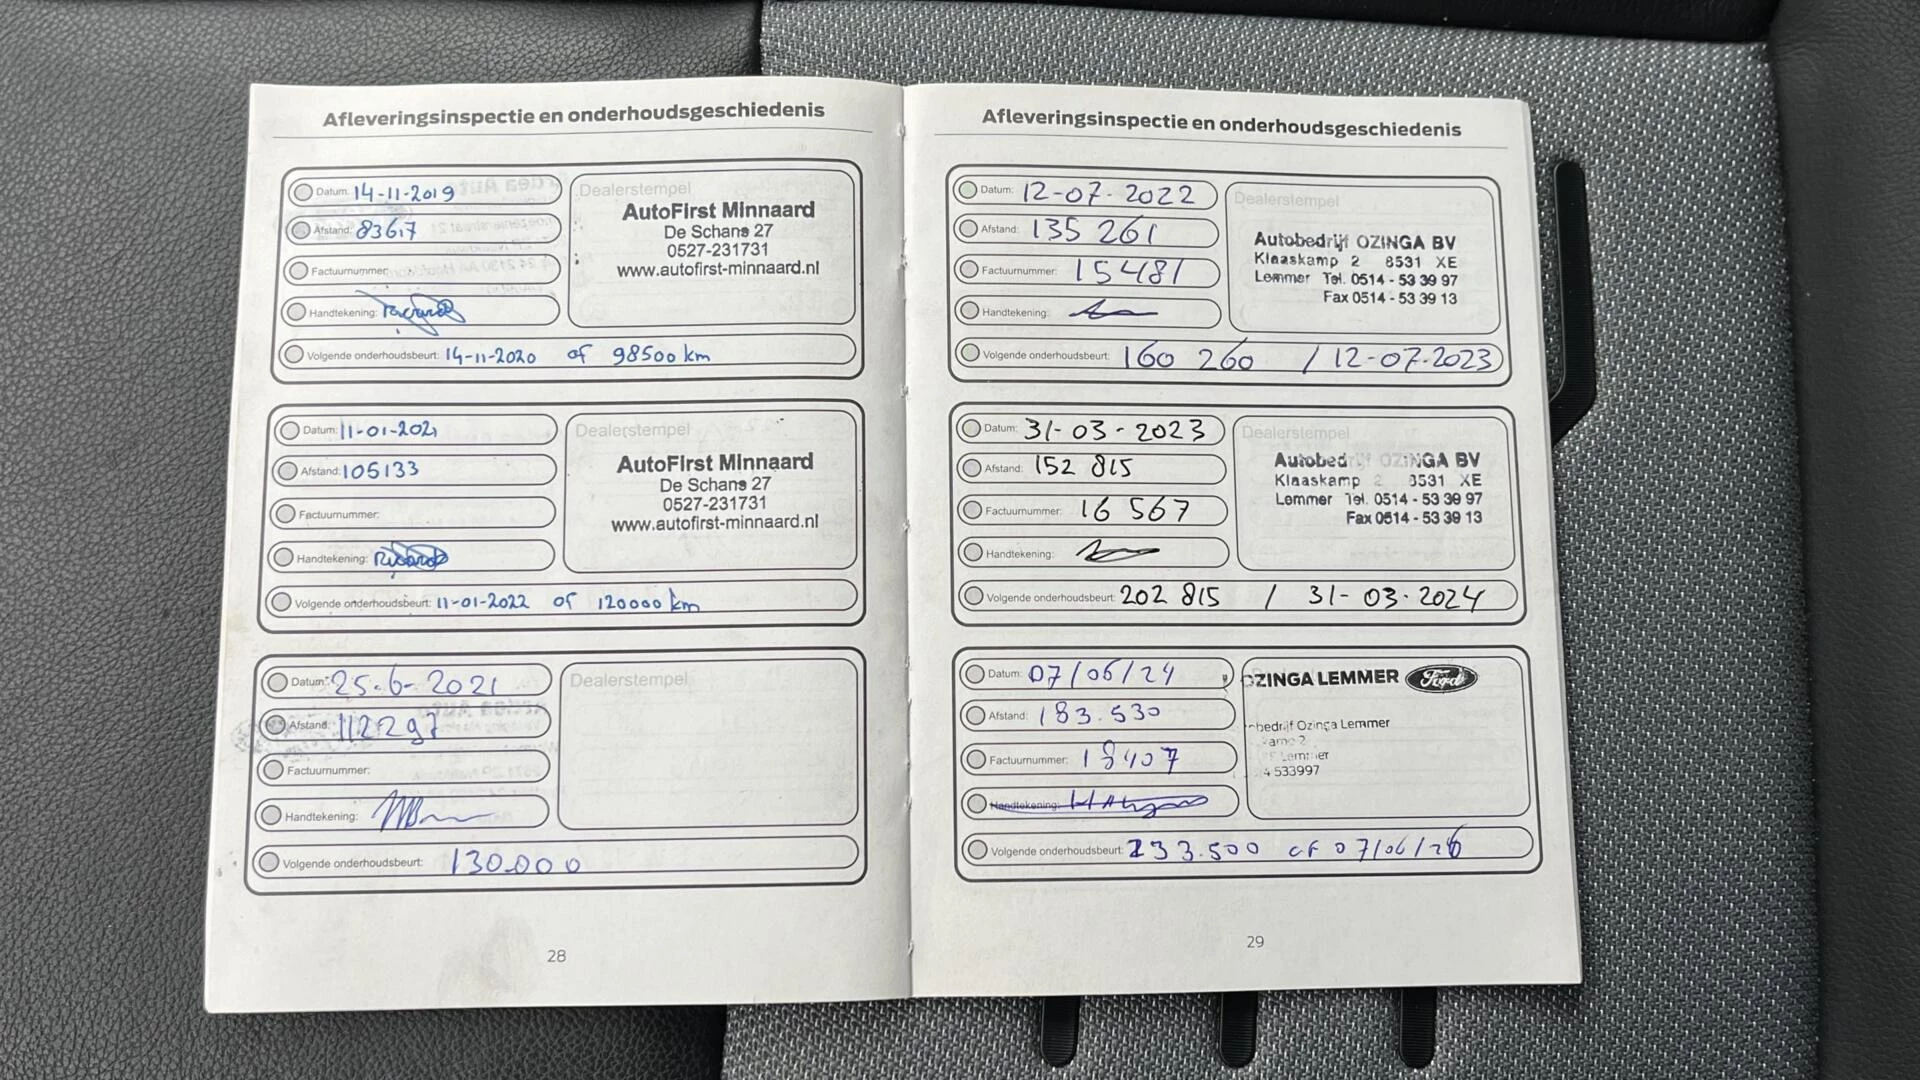 Afleveringsinspectie en onderhoudsgeschiedenis
Datum: 14-11-2019
Afstand: 83617
Factuurnummer:
Handtekening:
Dealerstempel
AutoFirst Minnaard
De Schans 27
0527-231731
www.autofirst-minnaard.nl
Volgende onderhoudsbeurt: 14-11-2020 of 98500 km
Datum: 11-01-2021
Afstand: 105133
Factuurnummer:
Handtekening:
Dealerstempel
AutoFirst Minnaard
De Schans 27
0527-231731
www.autofirst-minnaard.nl
Volgende onderhoudsbeurt: 11-01-2022 of 120000 km
Datum: 25-6-2021
Afstand: 112297
Factuurnummer:
Handtekening:
Dealerstempel
Volgende onderhoudsbeurt: 130.000
28
Afleveringsinspectie en onderhoudsgeschiedenis
Datum: 12-07-2022
Afstand: 135 261
Factuurnummer: 15481
Handtekening:
Dealerstempel
Autobedrijf OZINGA BV
Klaaskamp 2 8531 XE
Lemmer Tel. 0514 - 53 39 97
Fax 0514 - 53 39 13
Volgende onderhoudsbeurt: 160 260 / 12-07-2023
Datum: 31-03-2023
Afstand: 152 815
Factuurnummer: 16 567
Handtekening:
Dealerstempel
Autobedrijf OZINGA BV
Klaaskamp 2 8531 XE
Lemmer Tel. 0514 - 53 39 97
Fax 0514 - 53 39 13
Volgende onderhoudsbeurt: 202 815 / 31-03-2024
Datum: 07/06/24
Afstand: 183.530
Factuurnummer: 18407
Handtekening:
OZINGA LEMMER Ford
Ozinga Lemmer
2
Lemmer
533997
Volgende onderhoudsbeurt: 233.500 of 07/06/26
29